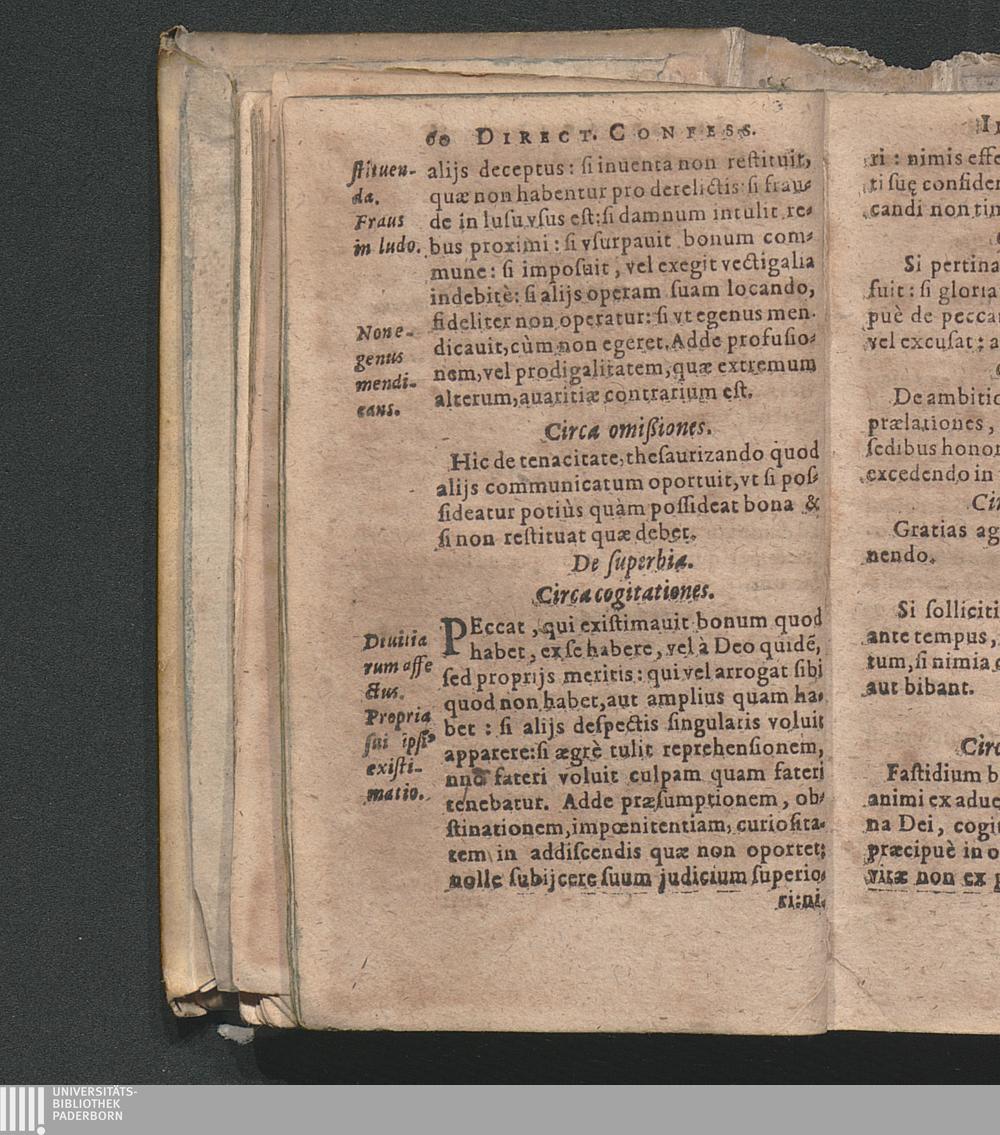 60 DIRECT. CONFESS.
ſtituen-
da.
Fraus
in ludo.
alijs deceptus: ſi inuenta non reſtituit,
quæ non habentur pro derelictis: ſi frau-
de in luſu vſus eſt: ſi damnum intulit re-
bus proximi: ſi vſurpauit bonum com-
mune: ſi impoſuit, vel exegit vectigalia
indebitè: ſi alijs operam ſuam locando,
fideliter non operatur: ſi vt egenus men-
dicauit, cùm non egeret. Adde profuſio-
nem, vel prodigalitatem, quæ extremum
alterum, auaritiæ contrarium eſt.
Non e-
genus
mendi-
cans.
Circa omiſſiones.
Hic de tenacitate, theſaurizando quod
alijs communicatum oportuit, vt ſi poſ-
ſideatur potiùs quàm poſſideat bona &
ſi non reſtituat quæ debet.
De ſuperbia.
Circa cogitationes.
PEccat, qui exiſtimauit bonum quod
habet, ex ſe habere, vel à Deo quidẽ,
ſed proprijs meritis: qui vel arrogat ſibi
quod non habet, aut amplius quam ha-
bet: ſi alijs deſpectis ſingularis voluit
apparere: ſi ægrè tulit reprehenſionem,
nno fateri voluit culpam quam fateri
tenebatur. Adde præſumptionem, ob-
ſtinationem, impœnitentiam, curioſita-
tem in addiſcendis quæ non oportet;
nolle ſubijcere ſuum judicium ſuperio-
ri: ni.
Diuitia
rum affe
ctus.
Propria
ſui ipſi⁹
exiſti-
matio.
ri: nimis effe
ti ſuę confider
candi non tin
Si pertina
fuit: ſi gloria
puè de pecca
vel excuſat: a
De ambitio
prælationes,
ſedibus honor
excedendo in
Cir
Gratias ag
nendo.
Si ſolliciti
ante tempus,
tum, ſi nimia
aut bibant.
Circ
Faſtidium b
animi ex adue
na Dei, cogit
præcipuè in o
vitæ non ex p
UNIVERSITÄTS-
BIBLIOTHEK
PADERBORN